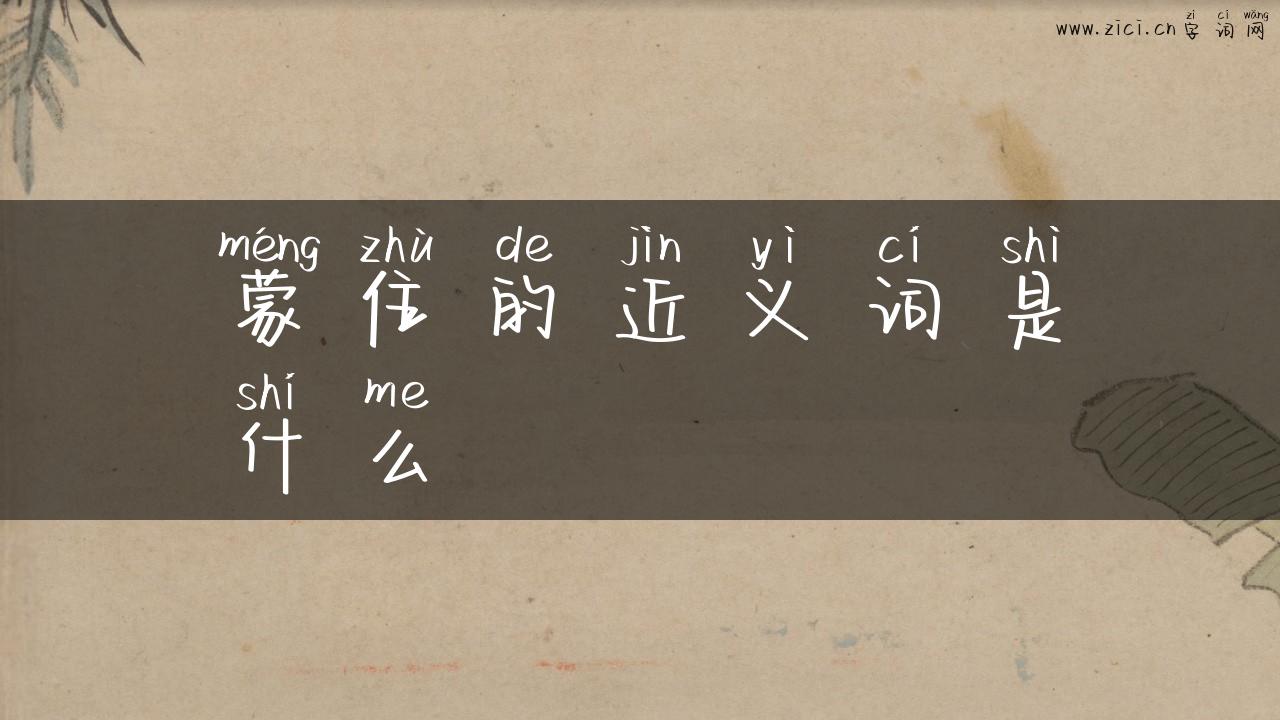 zì cí wǎng
www.zici.cn 字词网
méng zhù de jìn yì cí shì
蒙住的近义词是
shí me
什么